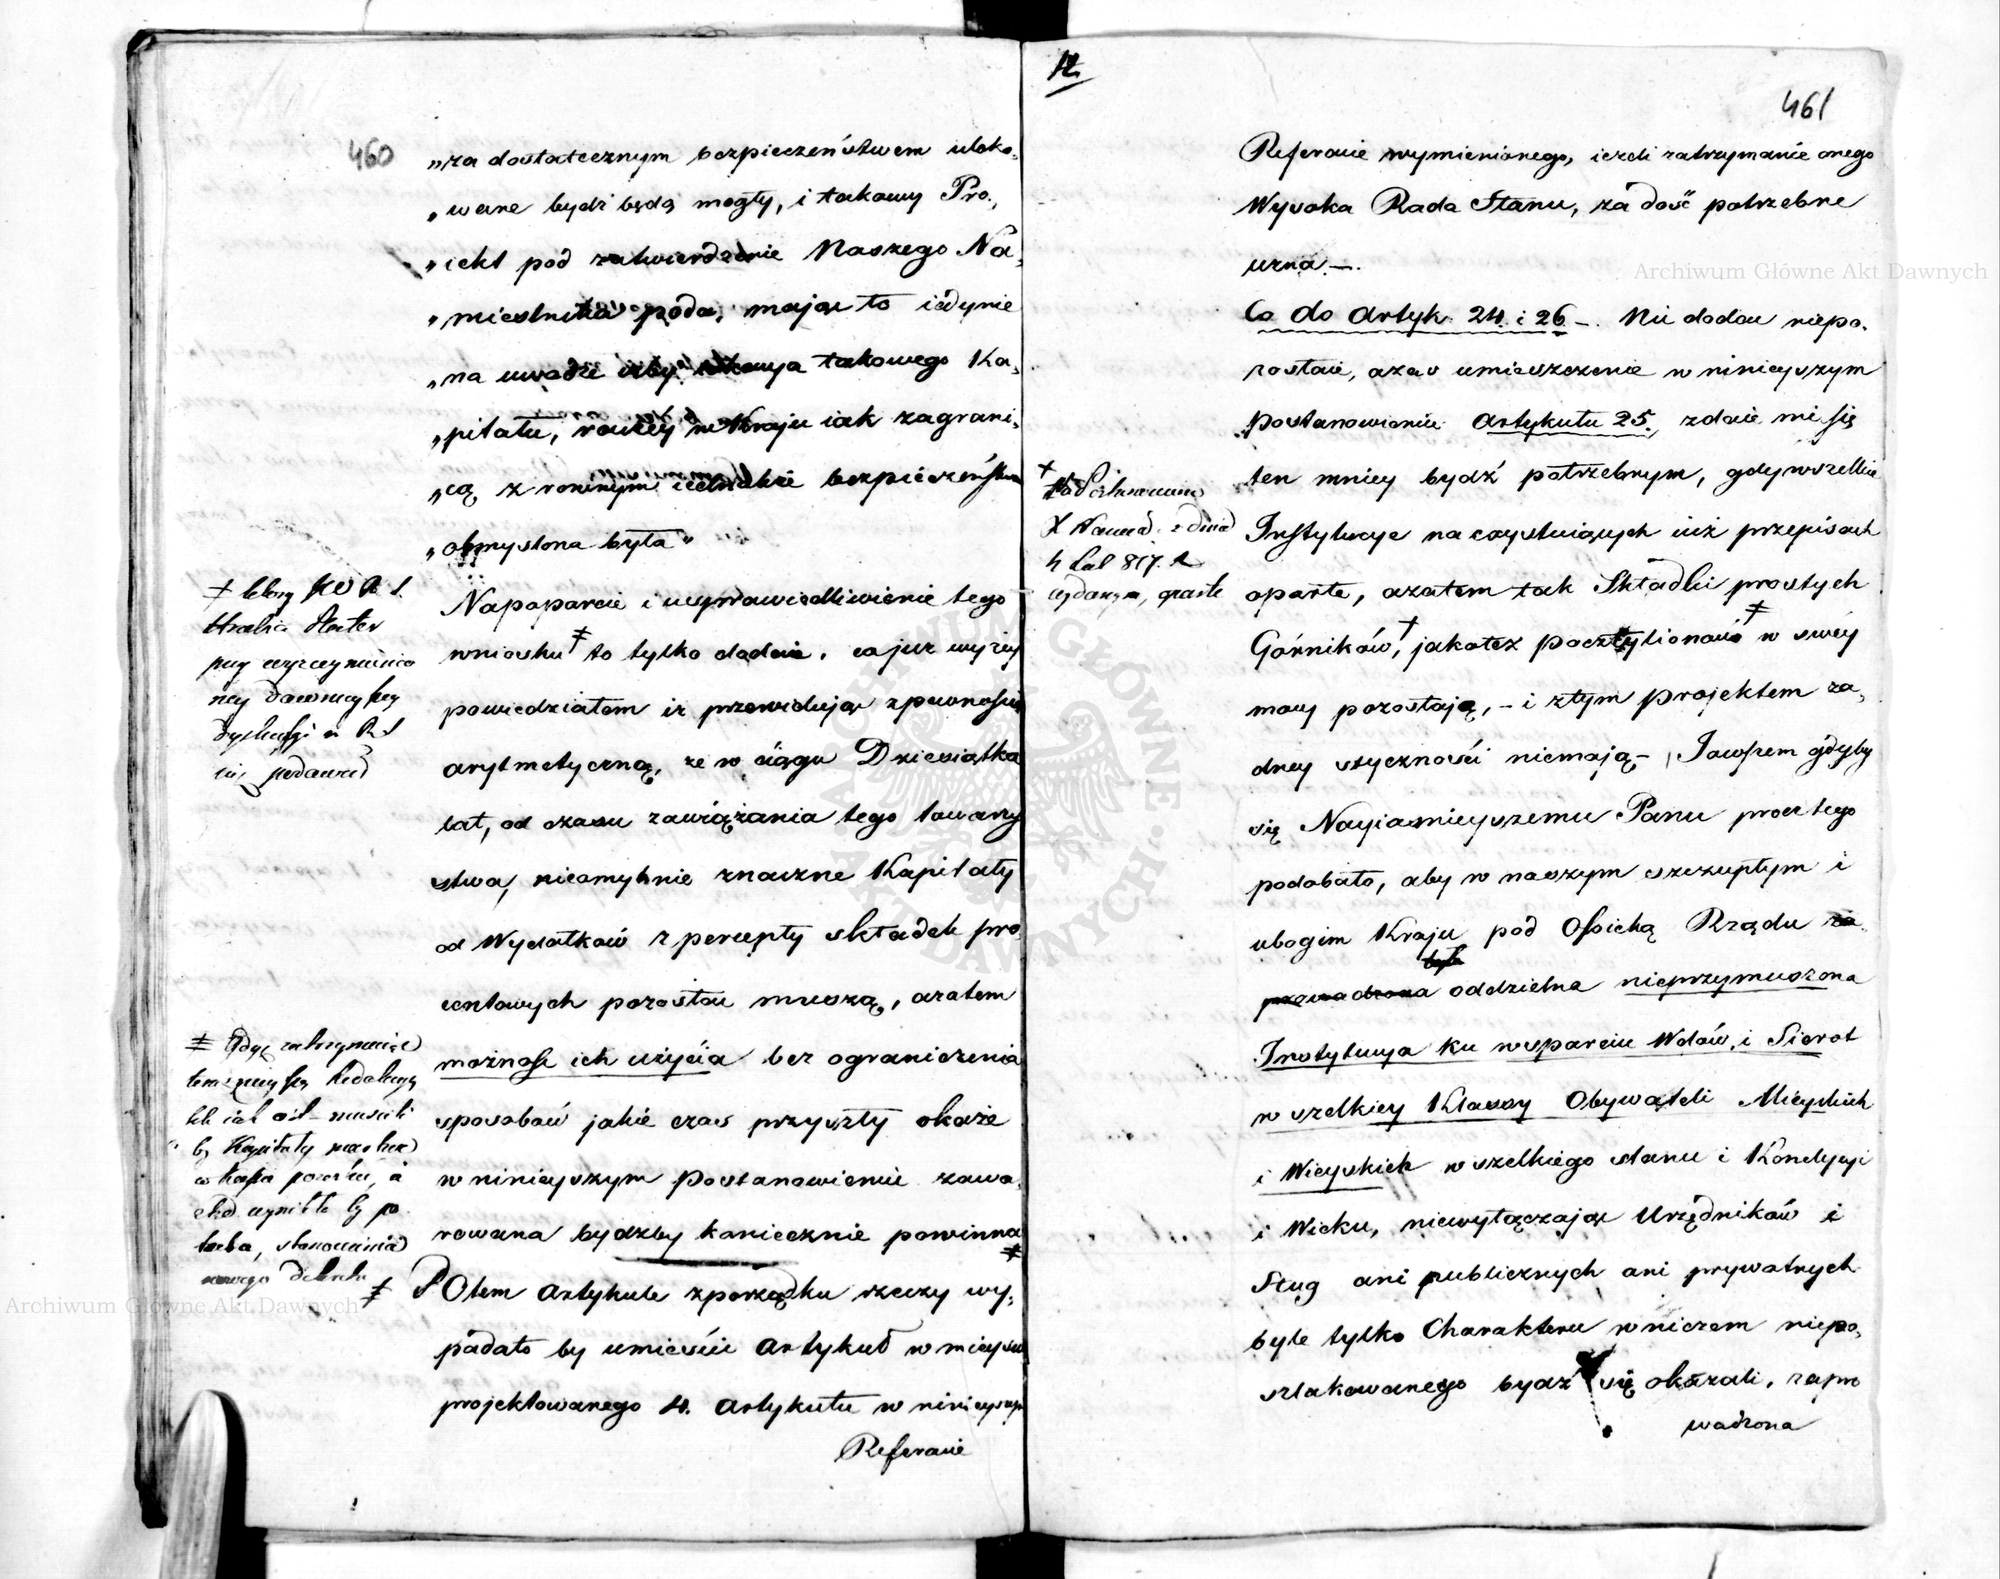 460
„za dostatecznym bezpieczeństwem uloko„
„wane bydź będą mogły, i takowy Pro„
„iekt pod zatwierdzenie Naszego Na„
„miestnika poda, maiąc to iedynie
„na uwadze iżby lokacya takowego Ka„
„pitału, raczey w Kraju iak zagrani„
„cą z rownym iednakże bezpieczeństwem
„obmyslona była"
Na poparcie i usprawiedliwienie tego
wniosku ‡ to tylko dodaię, co już wyżey
powiedziałem iż przewidując z pewnością
arytmetyczną, że w ciągu Dziesiątka
lat, od czasu zawiązania tego towarzy
stwa, nieomylnie znaczne Kapitały
od Wydatków z percepty składek pro
centowych pozostać muszą, azatem
możność ich użycia bez ograniczenia
sposobów jakie czas przyszły okaże
w ninieyszym Postanowieniu zawa„
rowana bydźby koniecznie powinna ‡
‡ Po tem Artykule z porządku rzeczy wy„
padało by umieścić Artykuł w mieyscu
projektowanego 4. Artykułu w ninieyszym
Referacie
przy
Dyskusyi w R. S
podawał
Kapitały
nowego
12.
461
Referacie wymienionego, ieżeli zatrzymanie onego
Wysoka Rada Stanu, za dość potrzebne
uzna —.
Co do Artyk. 24. i 26 —. Nic dodać niepo„
zostaie, azaś umieszczenie w ninieyszym
Postanowieniu Artykułu 25., zdaie mi się
ten mniey bydź potrzebnym, gdy wszelkie
Instytucye na exystuiących iuż przepisach
oparte, azatem tak Składki prostych
Górników †, jakoteż Pocztylionów ‡ w swey
mocy pozostają, — i z tym projektem ża„
dney styczności niemają — Jawszem gdyby
się Nayiasnieyszemu Panu procz tego
podobało, aby w naszym szczupłym i
ubogim Kraju pod Opieką Rządu za
była
prowadzona oddzielna nieprzymuszona
Instytucya ku wsparciu Wdów, i Sierot
wszelkiey Klassy Obywateli Mieyskich
i Wieyskich wszelkiego stanu i Kondycyi
i Wieku, niewyłączając Urzędników i
Sług ani publicznych ani prywatnych
byle tylko Charakteru w niczem niepo„
szlakowanego bydź się okazali, zapro
wadzona
†
z dnia
817. r.
wydanym, oparte
Archiwum Główne Akt Dawnych
Archiwum Główne Akt Dawnych
ARCHIWUM GŁÓWNE AKT DAWNYCH